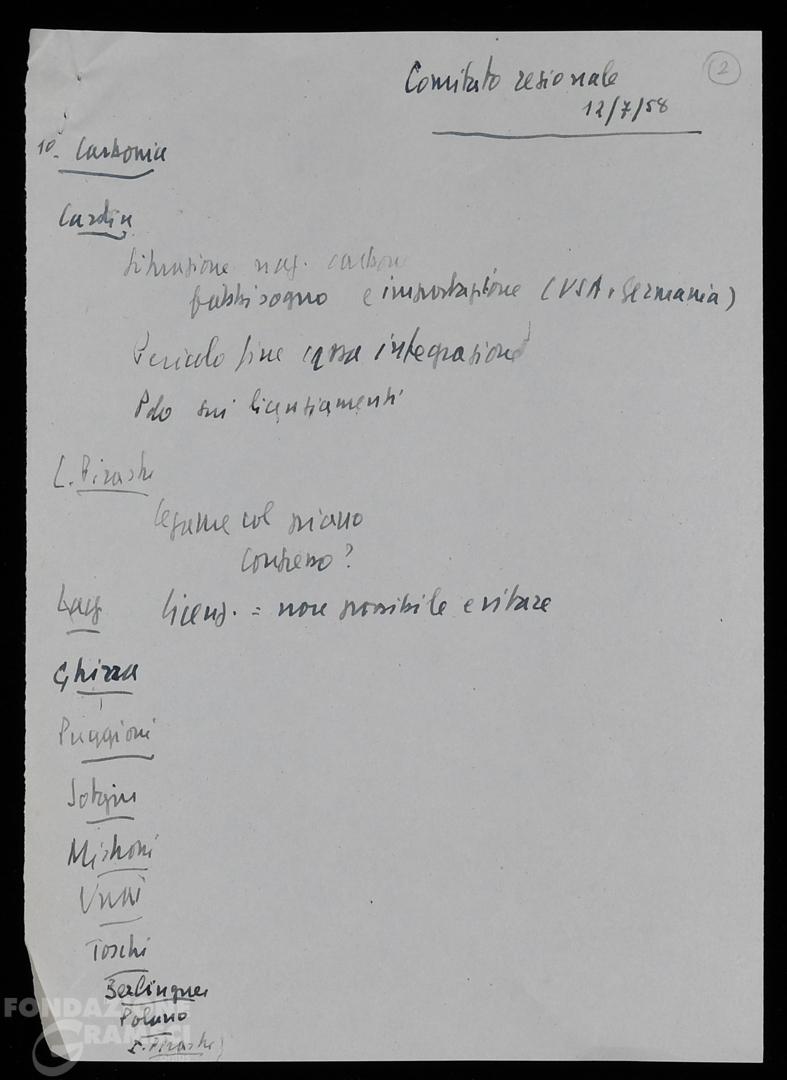 Comitato regionale
2
12/7/58
1º - Carbonia
Cardia
Situazione naz. carbone
fabbisogno e importazione (USA e Germania)
Pericolo fine cassa integrazione
Pdo sui licenziamenti
L. Pirastu
legame col piano
Congresso?
Lay licenz. = non possibile evitare
Ghirra
Puggioni
Sotgiu
Mistroni
Toschi
Berlinguer
Polano
L. Pirastu
FONDAZIONE
GRAMSCI